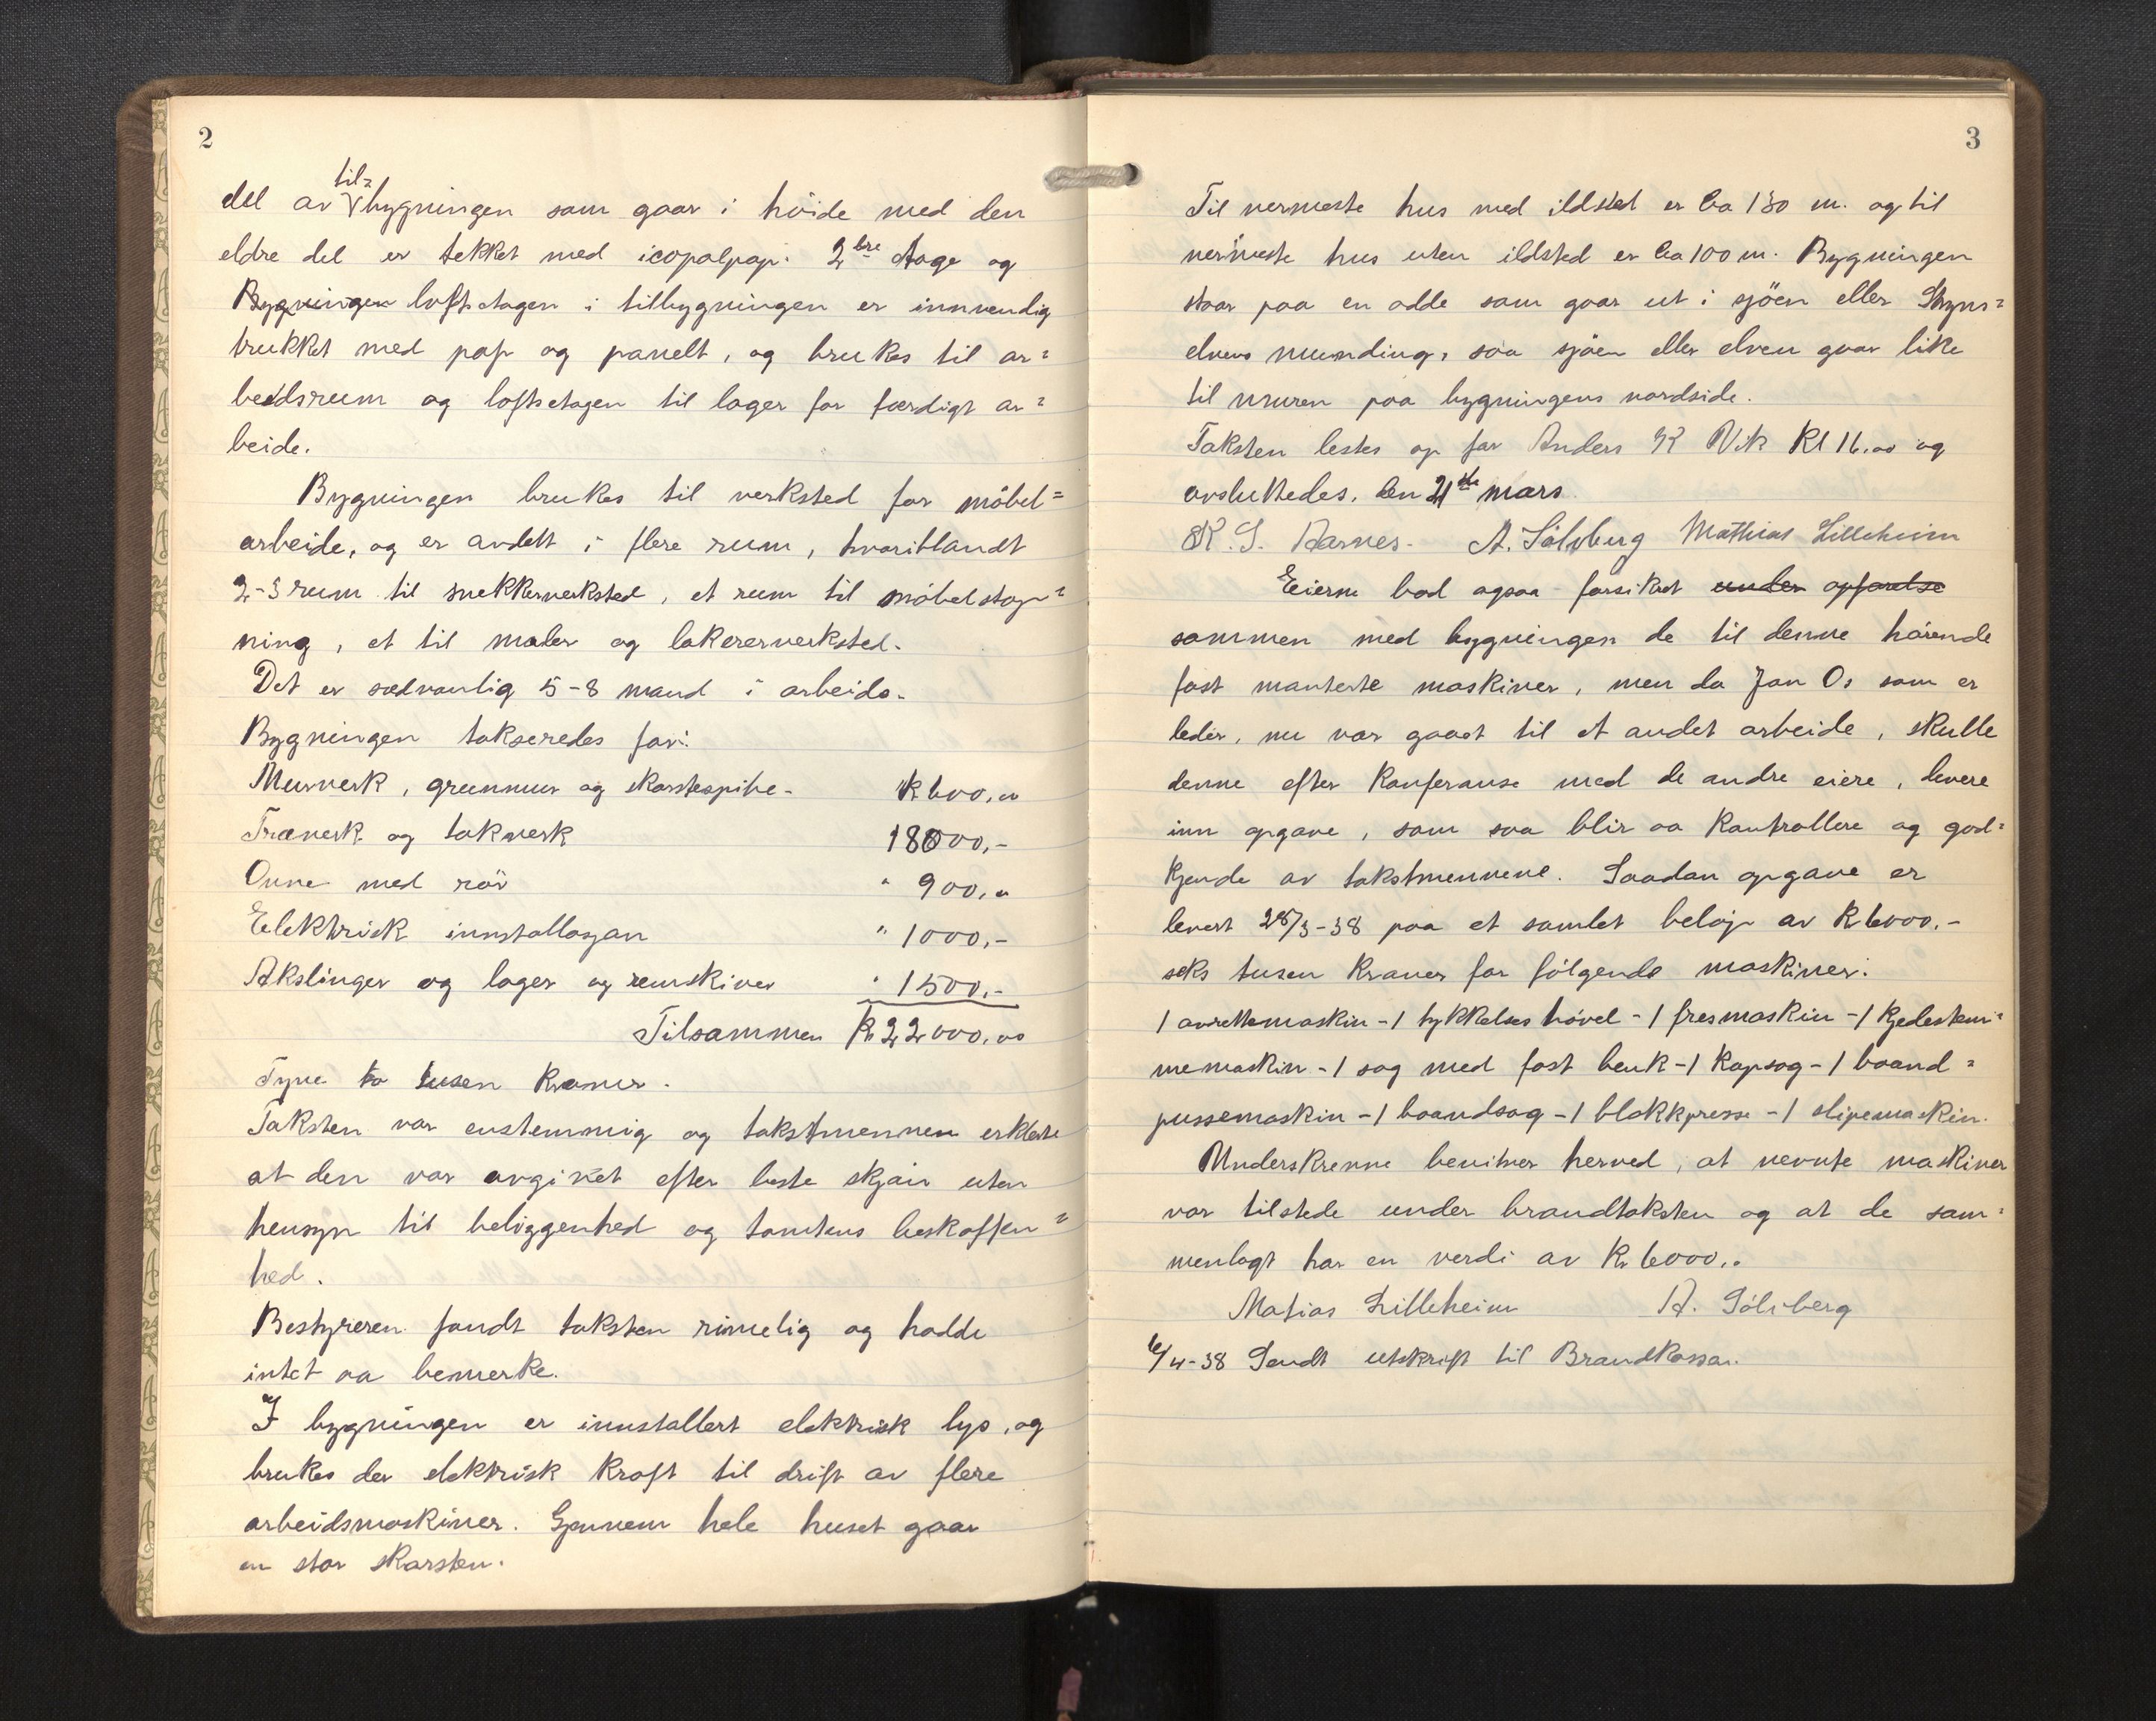 2
til=
del av bygningen som gaar i höide med den
eldre del er tekket med icopalpap. 2bre Etage og
Bygningen loftsetagen i tilbygningen er innvendig
trukket med pap og panelt, og brukes til ar=
beidsrum og loftsetagen til lager for færdigt ar=
beide.
Bygningen brukes til verksted for möbel=
arbeide, og er avdelt i flere rum, hvoriblandt
2-3 rum til snekkerverksted, et rum til möbelstop=
ning, et til maler og lakererverksted.
Det er sædvanlig 5-8 mand i arbeide.
Bygningen takseredes for:
Murverk, grunmur og skorstespipe - Kr 600,00
Træverk og takverk 18000,-
Ovne med rör " 900,00
Elektrisk innstallasjon " 1000,-
Akslinger og lager og remskiver " 1500,-
Tilsammen Kr 22000,00
Tyve to tusen Kroner.
Taksten var enstemmig og takstmennene erklerte
at den var avgivet efter beste skjön uten
hensyn til beliggenhed og tomtens beskaffen=
hed.
Bestyreren fandt taksten rimelig og hadde
intet aa bemerke.
I bygningen er innstallert elektrisk lys, og
brukes der elektrisk Kraft til drift av flere
arbeidsmaskiner. Gjennem hele huset gaar
en stor skorsten.
3
Til nermeste hus med ildsted er Ca 130 m. og til
nermeste hus uten ildsted er Ca 100 m. Bygningen
staar paa en odde som gaar ut i sjöen eller Stryns=
elvens munding, saa sjöen eller elven gaar like
til muren paa bygningens nordside.
Taksten lestes op for Anders K Vik Kl 16.00 og
avsluttedes, den 21de mars.
K. S. Aarnes. A. Sölvberg Mathias Lilleheim
Eierne bad ogsaa forsikret under opforelse
sammen med bygningen de til denne hörende
fast monterte maskiner, men da Jon Os som er
leder, nu var gaaet til et andet arbeide, skulle
denne efter Konferanse med de andre eiere, levere
inn opgave, som saa blir aa Kontrollere og god=
kjende av takstmennene. Saadan opgave er
levert 28/3-38 paa et samlet belöp av Kr 6000.-
seks tusen Kroner for fölgende maskiner:
1 avrettemaskin - 1 tykkelses hövel - 1 fresmaskin - 1 Kjedestem=
memaskin - 1 sag med fast benk - 1 Kapsag - 1 baand=
pussemaskin - 1 baandsag - 1 blokkpresse - 1 slipemaskin.
Underskrevne bevitner herved, at nevnte maskiner
var tilstede under brandtaksten og at de sam=
menlagt har en verdi av Kr 6000,.
Matias Lilleheim A. Sölvberg
6/4-38 Sendt utskrift til Brandkassan.